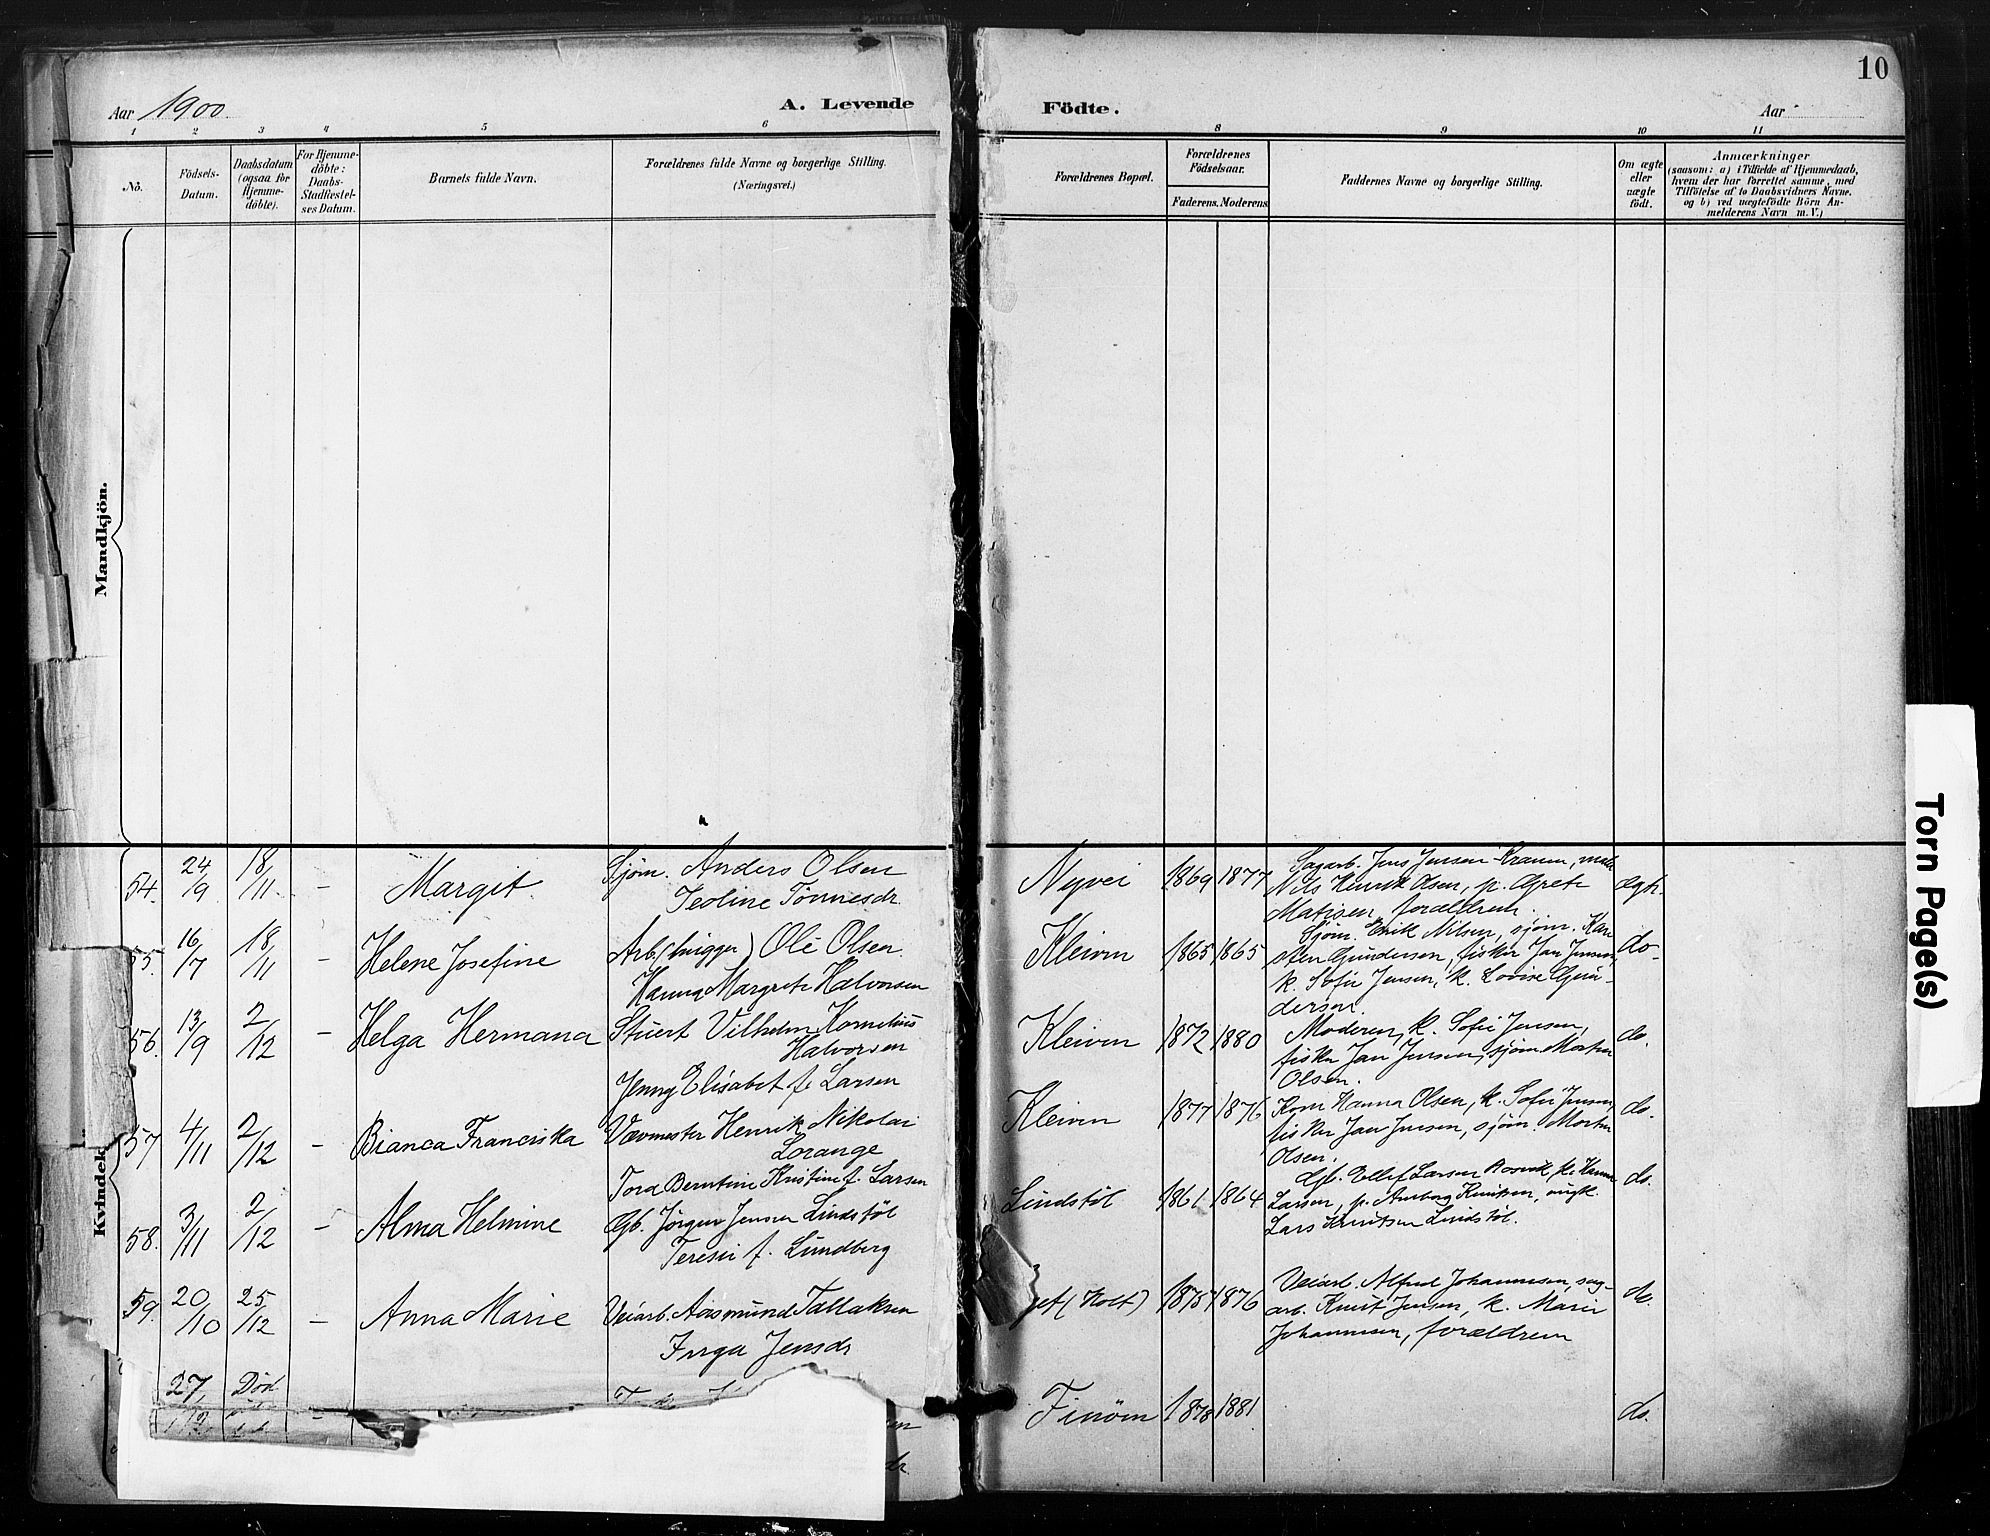 10
Aar 1900.
A. Levende
Födte.
Aar
1 2 3 4 5 6 8 9 10 11
No.
Födsels-
Datum.
Daabsdatum
(ogsaa for
Hjemme-
döbte).
For Hjemme-
döbte:
Daabs-
Stadfæstel-
ses Datum.
Barnets fulde Navn.
Forældrenes fulde Navne og borgerlige Stilling.
(Næringsvei.)
Forældrenes Bopæl.
Forældrenes
Födselsaar.
Faderens. Moderens.
Faddernes Navne og borgerlige Stilling.
Om ægte
eller
uægte
födt.
Anmærkninger
(saasom: a) i Tilfælde af Hjemmedaab,
hvem der har forrettet samme, med
Tilföielse af to Daabsvidners Navne.
og b) ved uægtefödte Börn An-
melderens Navn m. V.)
Mandkjön.
Kvindek
54. 24/9 18/11 - Margit Sjøm. Anders Olsen
Teoline Tønnesdr.
Nyvei 1869 1877 Sagarb. Jens Jensen
Nils Henrik Olsen, p. Grete
Matisen, forældrene. ægte.
55. 16/7 18/11 - Helene Josefine Arb. Ole Olsen
Hanna Margrete Halvorsen
Kleiven 1865 1865 Sjøm. Erik Nilsen, sjøm. Kar
sten Gundersen, fisker Jan Jensen,
k. Sofie Jensen, k. Lovise Gun-
dersen. do-
56. 13/9 2/12 - Helga Hermana Stuert Vilhelm Kornelius
Halvorsen
Jenny Elisabet f. Larsen
Kleiven 1872 1880 Moderen, k. Sofie Jensen,
fisker Jan Jensen, sjøm. Morten
Olsen. do.
57 4/11 2/12 - Bianca Franciska Vævmester Henrik Nikolai
Lorange
Tora Berntine Kristine f. Larsen
Kleiven 1877 1876 Kone Hanna Olsen, k. Sofie Jensen,
fisker Jan Jensen, sjøm. Morten
Olsen. do.
58. 3/11 2/12 - Alma Helmine Gb. Jörgen Jensen Lindstøl
Teresie f. Lundberg
Lindstøl 1861 1864 Gb. Ellef Larsen
Larsen, p. Knutsen, ungk.
Lars Knutsen Lindstøl. do.
59. 20/10 25/12 - Anna Marie Veiarb. Aasmund Tallaksen
Inga Jensdr
(Holt) 1875 1876 Veiarb. Alfred Johannesen, sag-
arb. Knut Jensen, k. Marie
Johannesen, forældrene do.
27/12 Død
Finøen 1878 1881 do.
Torn Page(s)